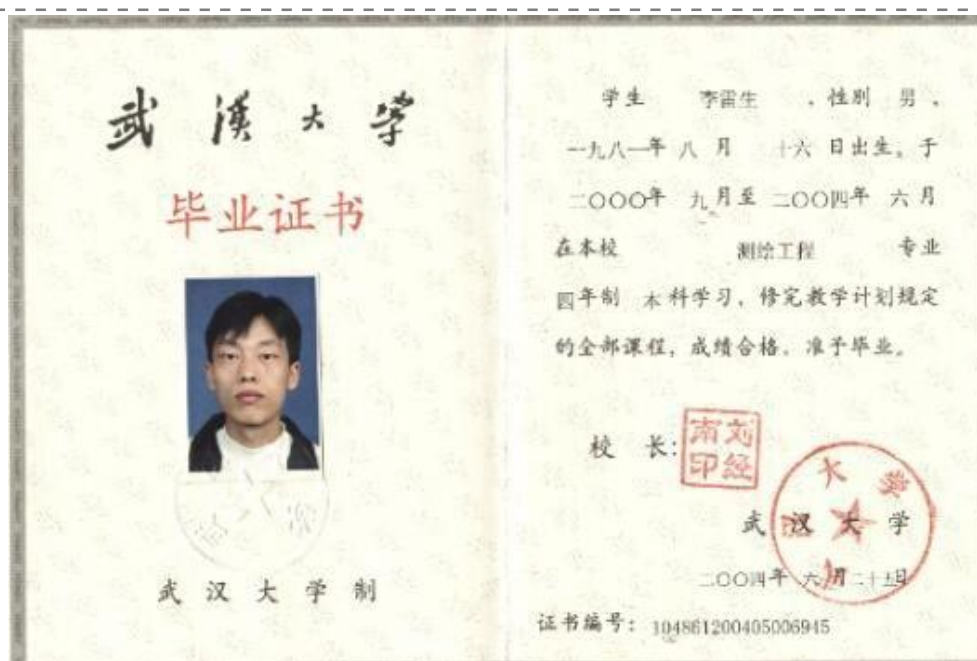 武漢大学
毕业证书
武汉大学制
学生 李雷生 ，性别 男 ，
一九八一年 八 月 十六 日出生。于
二〇〇〇年 九 月至 二〇〇四年 六 月
在本校 测绘工程 专业
四年制 本 科学习，修完教学计划规定
的全部课程，成绩合格，准予毕业。
校 长：
刘经南印
武 汉 大 学
二〇〇四年 六 月 二十五日
证书编号： 104861200405006945